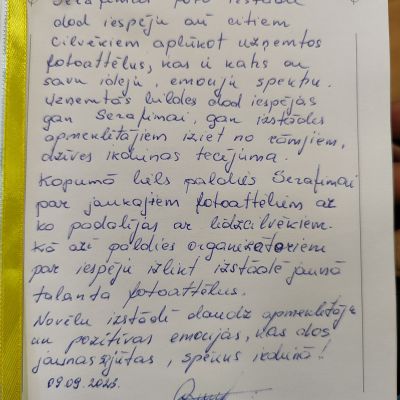 Serafimai foto izstāde
dod iespēju arī citiem
cilvēkiem aplūkot uzņemtos
fotoattēlus, kas ir katrs ar
savu ideju, emociju spektru.
Uzņemtās bildes dod iespējas
gan Serafimai, gan izstādes
apmeklētājiem iziet no rāmjiem,
dzīves ikdienas tecējuma.
Kopumā liels paldies Serafimai
par jaukajiem fotoattēliem ar
ko padalījās ar līdzcilvēkiem.
Kā arī paldies organizatoriem
par iespēju izlikt izstādē jaunā
talanta fotoattēlus.
Novēlu izstādē daudz apmeklētāju
un pozitīvas emocijas, kas dos
jaunas izjūtas, spēkus ikdienā!
09.09.2023.